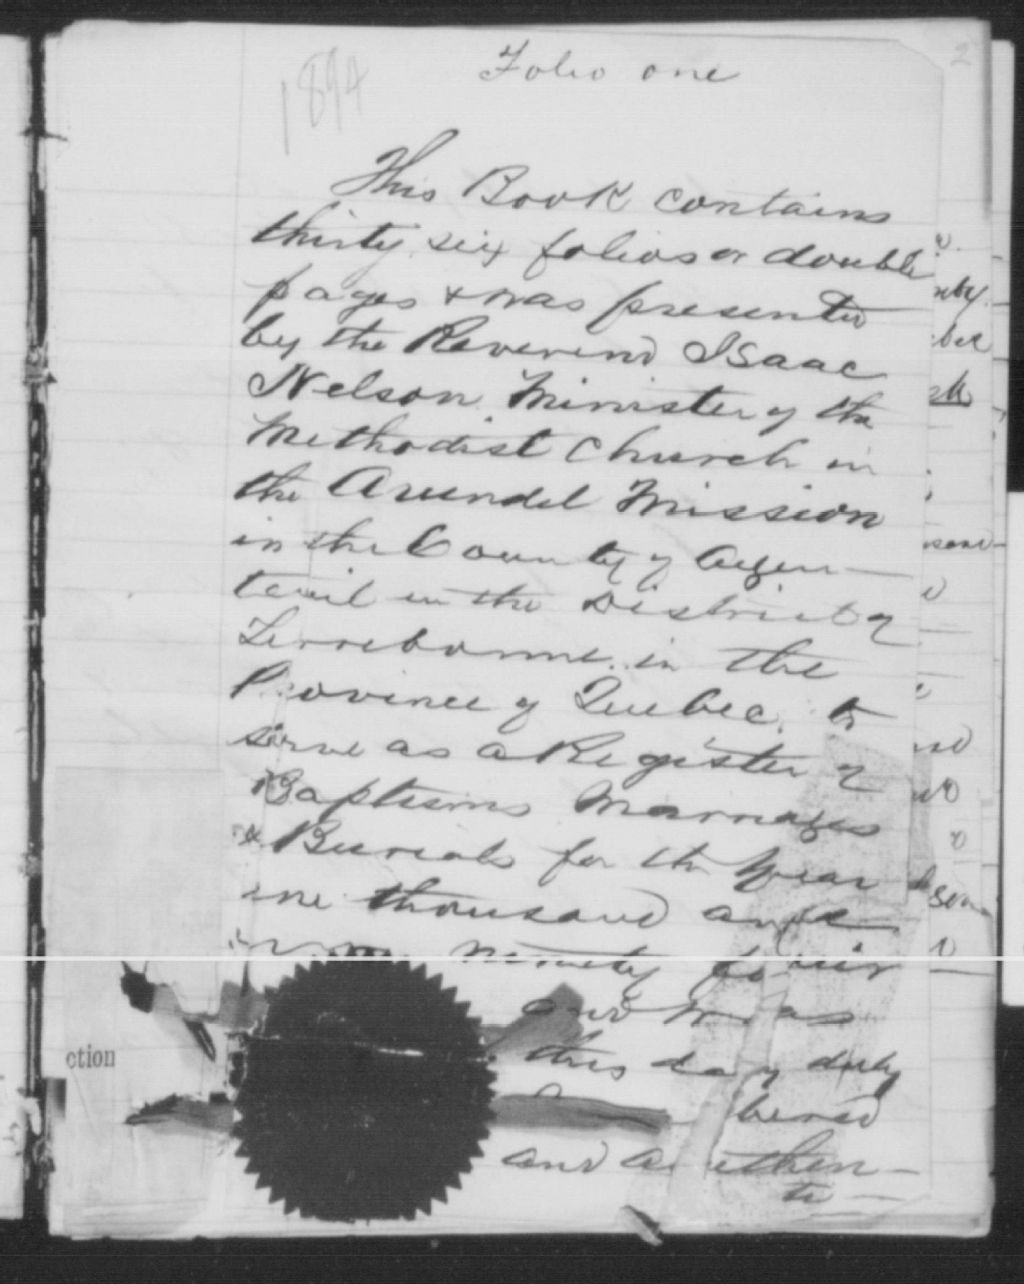 2
Folio one
1894
This Book contains
thirty six folios or double
pages & was presented
by the Reverend Isaac
Nelson Minister of the
Methodist Church in
the Arundel Mission
in the County of Argen—
teuil in the District of
Terrebonne in the
Province of Quebec, to
serve as a Register of
Baptisms Marriages
& Burials for the year
one thousand and
ninety four
and was
this day duly
bered
and authen—
ti—
ction